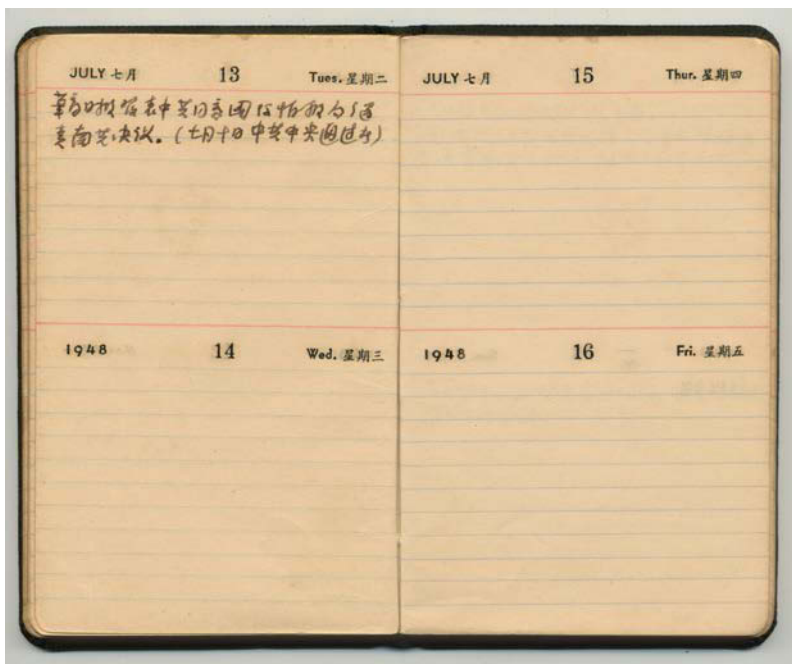 JULY 七月 13 Tues. 星期二
華商日报發表中共同意国际情报局谴
责南共决议。(七月十日中共中央通过)
1948 14 Wed. 星期三
JULY 七月 15 Thur. 星期四
1948 16 Fri. 星期五